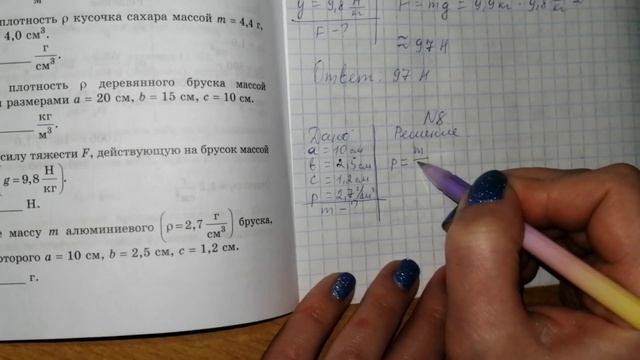 плотность ρ кусочка сахара массой m = 4,4 г,
4,0 см³.
г/см³.
плотность ρ деревянного бруска массой
размерами a = 20 см, b = 15 см, c = 10 см.
кг/м³.
силу тяжести F, действующую на брусок массой
g = 9,8 Н/кг).
Н.
массу m алюминиевого (ρ = 2,7 г/см³) бруска,
которого a = 10 см, b = 2,5 см, c = 1,2 см.
г.
g = 9,8 Н/кг
F - ?
F = mg = 9,9 кг · 9,8 Н/кг ≈
≈ 97 Н
Ответ: 97 Н
N8
Дано
a = 10 см
b = 2,5 см
c = 1,2 см
ρ = 2,7 г/см³
m - ?
Решение
ρ = m